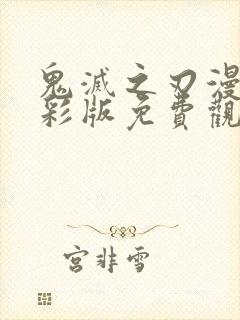 鬼滅之刃漫
彩版免費觀
宮非雪